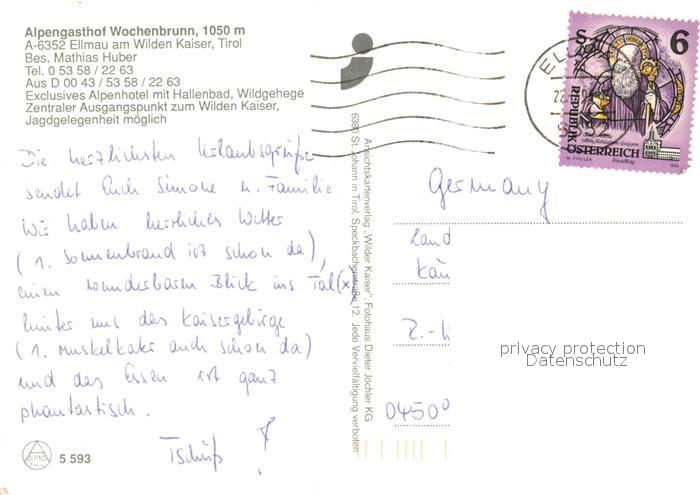 Alpengasthof Wochenbrunn, 1050 m
A-6352 Ellmau am Wilden Kaiser, Tirol
Bes. Mathias Huber
Tel. 0 53 58 / 22 63
Aus D 00 43 / 53 58 / 22 63
Exclusives Alpenhotel mit Hallenbad, Wildgehege
Zentraler Ausgangspunkt zum Wilden Kaiser,
Jagdgelegenheit möglich
Die herzlichsten Urlaubsgrüße
sendet Euch Simone u. Familie
Wir haben herrliches Wetter
(1. Sonnenbrand ist schon da),
einen wunderbaren Blick ins Tal (x)
hinter uns das Kaisergebirge
(1. Muskelkater auch schon da)
und das Essen ist ganz
phantastisch.
Tschüß !
5 593
Ansichtskartenverlag „Wilder Kaiser", Fotohaus Dieter Jöchler KG
6380 St. Johann in Tirol, Speckbacherstraße 12. Jede Vervielfältigung verboten
6
REPUBLIK
ÖSTERREICH
Germany
Land
0450
privacy protection
Datenschutz